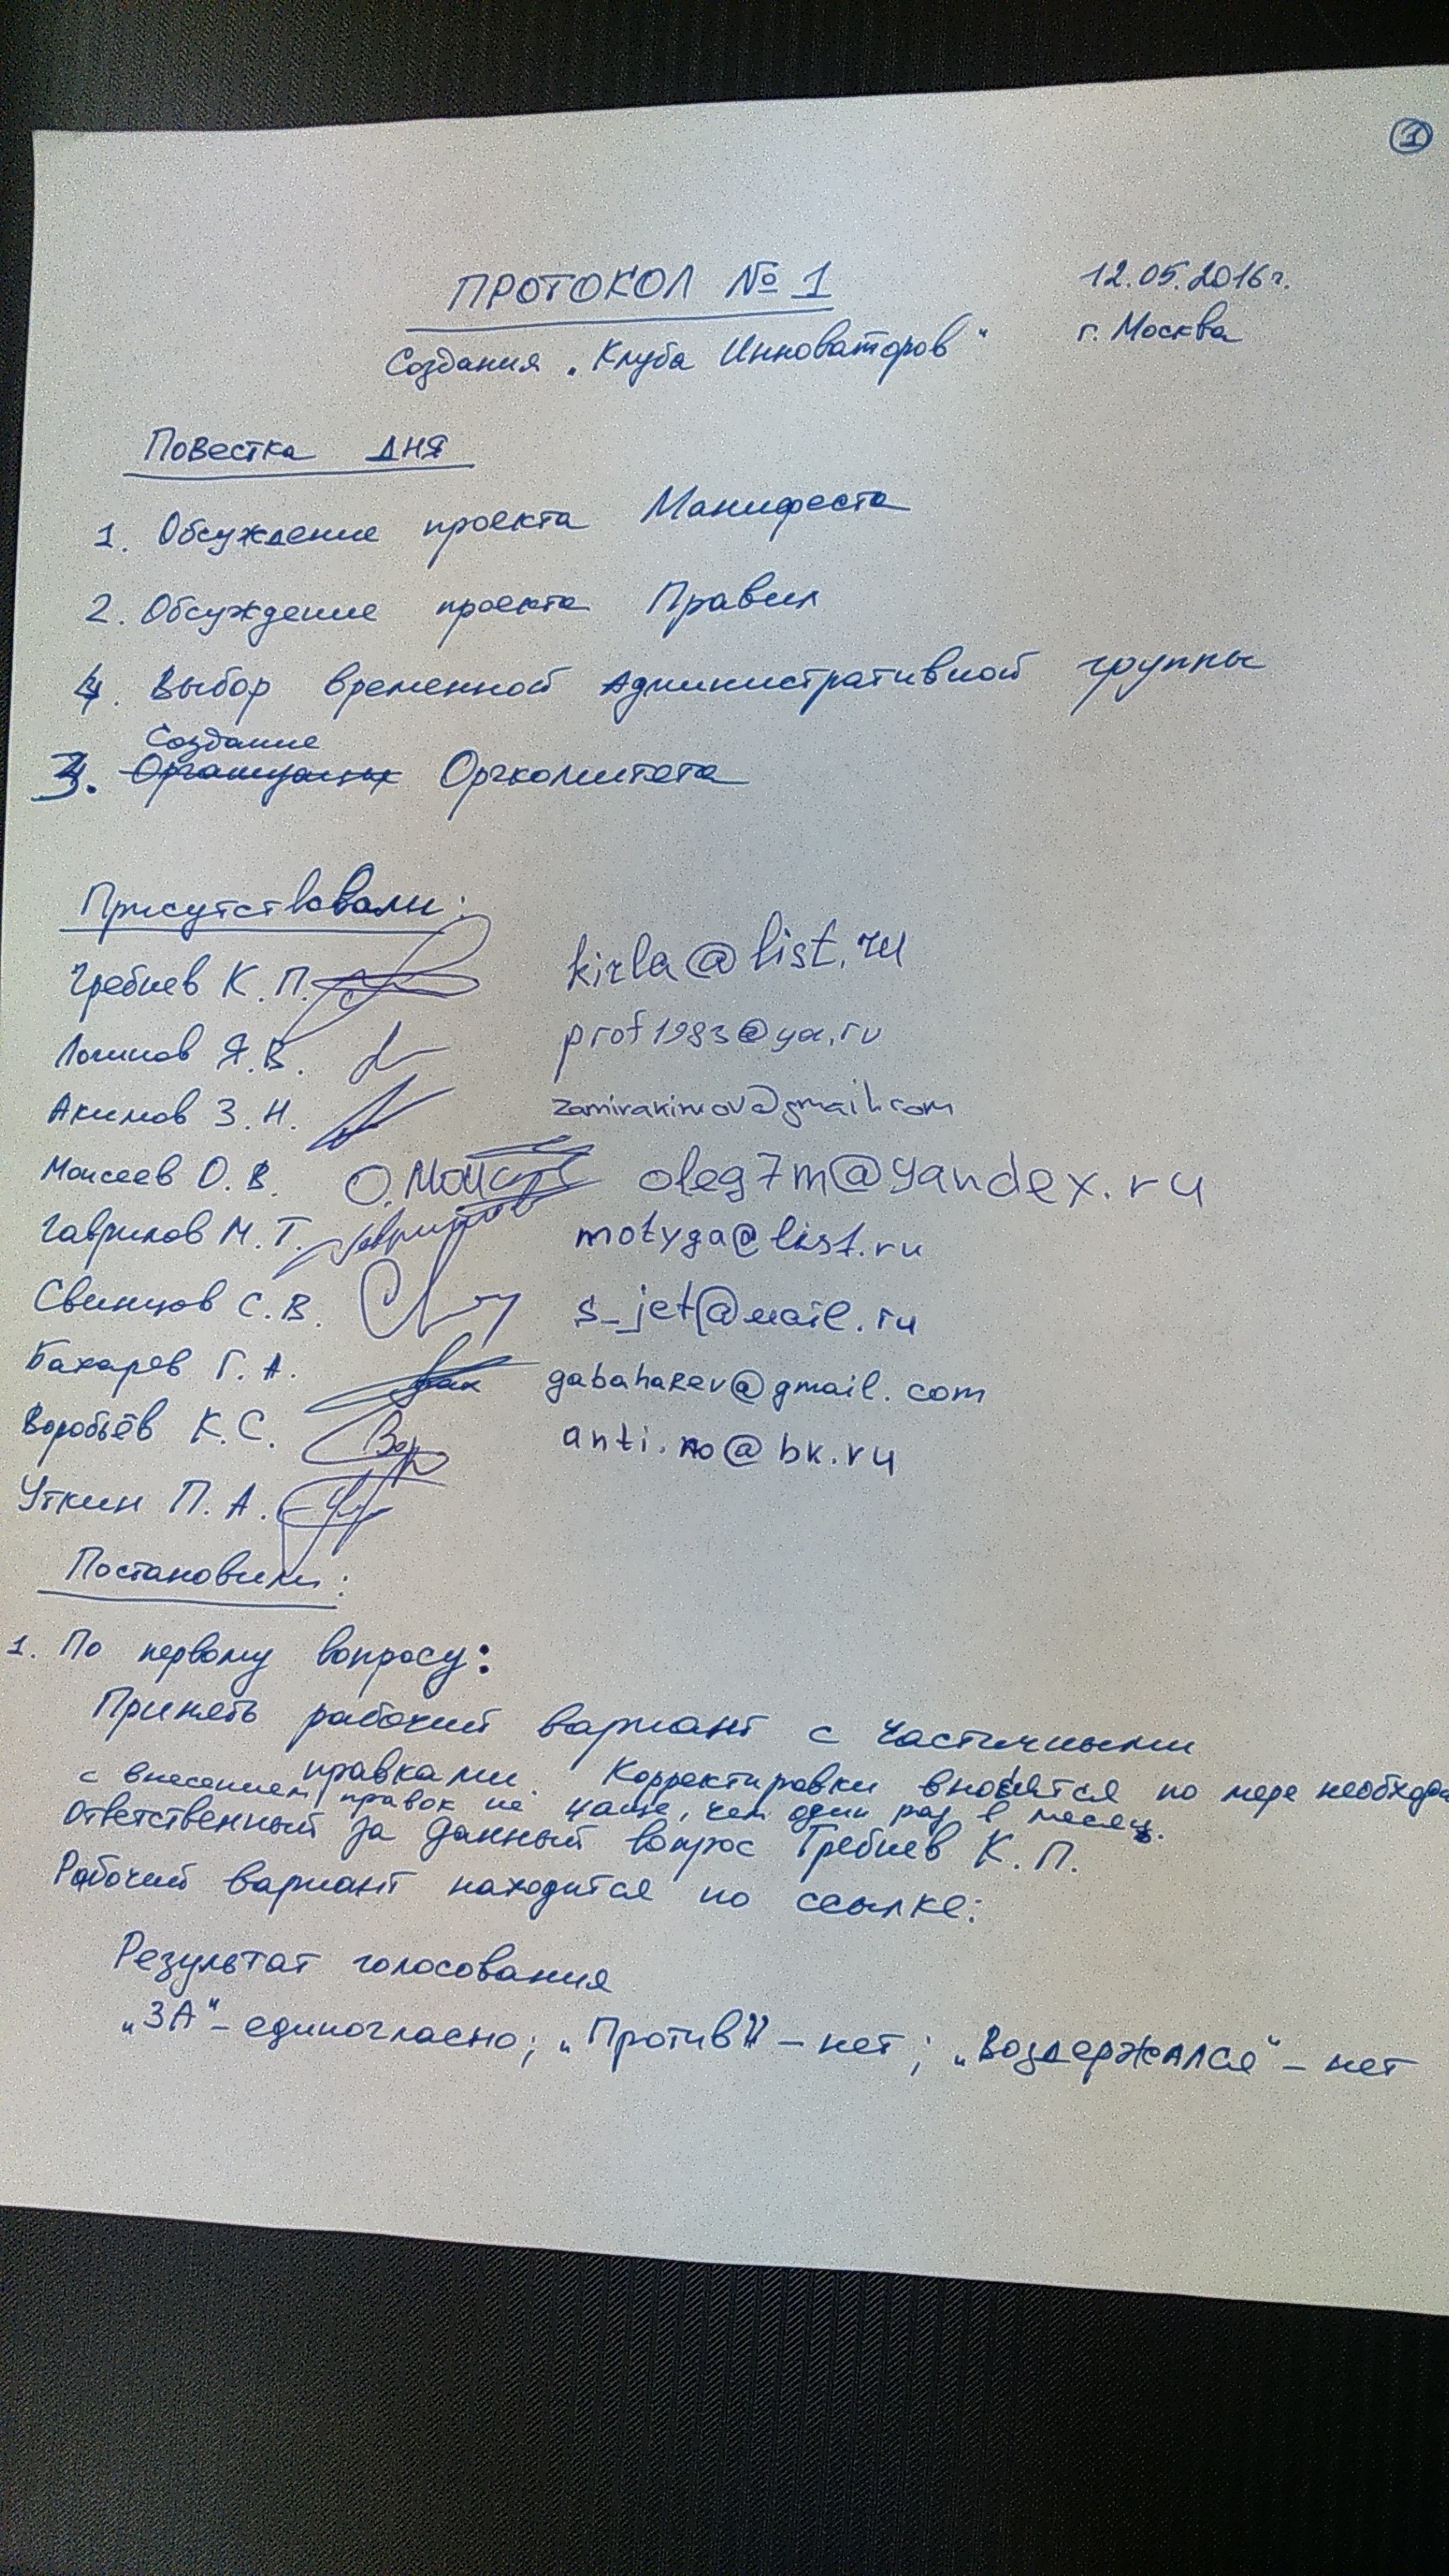 1
ПРОТОКОЛ № 1
12.05.2016г.
Создания „Клуба Инноваторов“
г. Москва
Повестка дня
1. Обсуждение проекта Манифеста
2. Обсуждение проекта Правил
4. Выбор временной Административной группы
Создание
3. Оркомитета
Присутствовали:
Гребнев К. П. kirla@list.ru
Логинов Я. В. prof1983@ya.ru
Акимов З. Н. zamirakimov@gmail.com
Моисеев О. В. О. Моисеев oleg7m@yandex.ru
Гаврилов М. Т. Гаврилов motyga@list.ru
Свинцов С. В. s_jet@mail.ru
Бахарев Г. А. Бах gabaharev@gmail.com
Воробьёв К. С. Вор anti.no@bk.ru
Уткин П. А.
Постановили:
1. По первому вопросу:
Принять рабочий вариант с частичными
правками. Корректировки вносятся по мере необходи
с внесением правок не чаще, чем один раз в месяц.
Ответственный за данный вопрос Гребнев К. П.
Рабочий вариант находится по ссылке:
Результат голосования
„ЗА“ – единогласно; „Против“ – нет; „Воздержался“ – нет